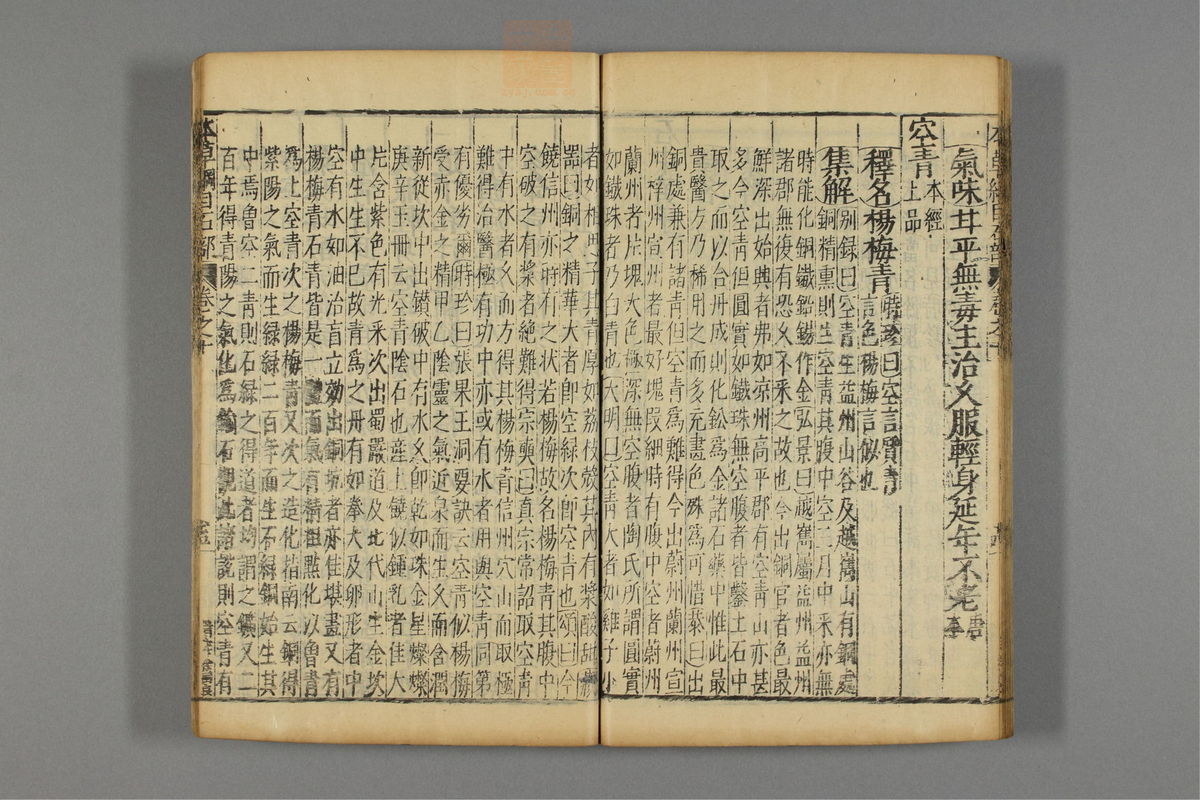 氣味甘平無毒主治久服輕身延年不老
空青本經上品
釋名楊梅青時珍曰空言質青言色楊梅言似也
集解別錄曰空青生益州山谷及越巂山有銅處
銅精熏則生空青其腹中空三月中采亦無
時能化銅鐵鉛錫作金弘景曰越巂屬益州益州
諸郡無復有恐久不采之故也今出銅官者色最
鮮深出始興者弗如凉州高平郡有空青山亦甚
多今空青但圓實如鐵珠無空腹者皆鑿土石中
取之而以合丹成則化鉛爲金諸石藥中惟此最
貴醫方乃稀用之而多充畫色殊爲可惜恭曰出
銅處兼有諸青但空青爲難得今出蔚州蘭州宣
州梓州宣州者最好塊段細時有腹中空者蔚州
蘭州者片塊大色極深無空腹者陶氏所謂圓實
如鐵珠者乃白青也大明曰空青大者如雞子小
者如相思子其青厚如荔枝殼其內有漿酸甜藏
器曰銅之精華大者卽空綠次卽空青也頌曰今
饒信州亦時有之狀若楊梅故名楊梅青其腹中
空破之有漿者絕難得宗奭曰真宗常詔取空青
中有水者久而方得其楊梅青信州穴山而取極
難得治翳極有功中亦或有水者用與空青同第
有優劣爾時珍曰張果玉洞要訣云空青似楊梅
受赤金之精甲乙陰靈之氣近泉而生久而含潤
新從坎中出鑽破中有水久卽乾如珠金星燦燦
庚辛玉冊云空青陰石也產上饒似鍾乳者佳大
片含紫色有光采次出蜀嚴道及北代山生金坎
中生生不已故青爲之丹有如拳大及卵形者中
空有水如油治盲立効出銅坑者亦佳堪畫又有
楊梅青石青皆是一體而氣有精粗點化以曾青
爲上空青次之楊梅青又次之造化指南云銅得
紫陽之氣而生綠綠二百年而生石綠銅始生其
中焉曾空二青則石綠之得道者均謂之礦又二
百年得青陽之氣化爲鍮石觀此諸說則空青有
本草綱目石部 卷之十